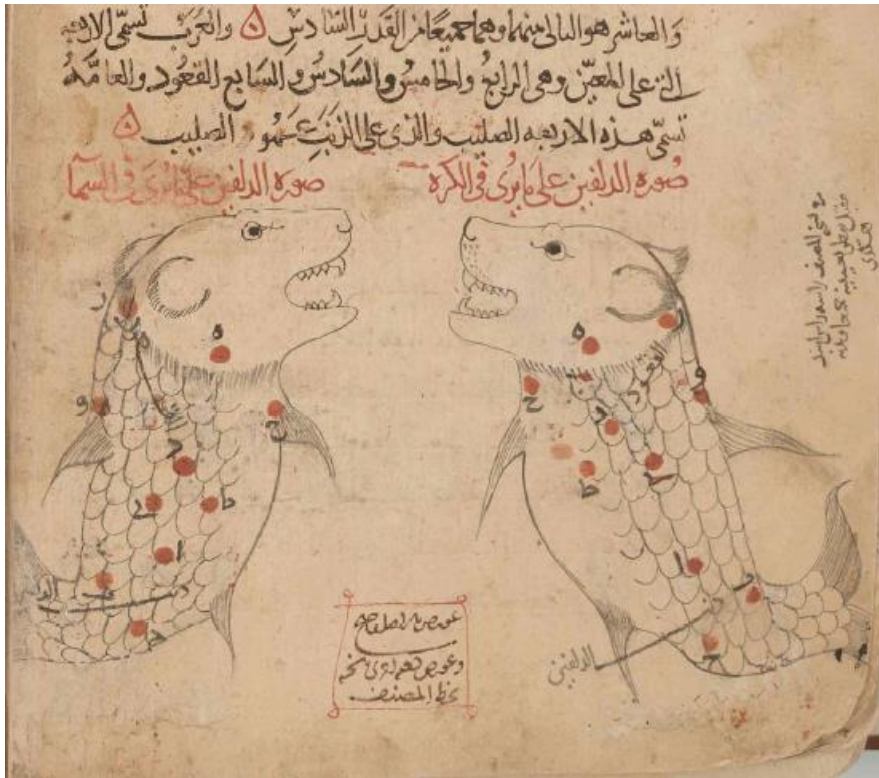 والعاشر هو التالى منهما وهما جميعا من القدر السادس ه والعرب تسمى الاربعه
التى على المعين وهى الرابع والخامس والسادس والسابع القعود والعامه
تسمى هذه الاربعه الصليب والذى على الذنب عمود الصليب ه
صوره الدلفين على ما يرى فى الكره
صوره الدلفين على ما يرى فى السما
ه
و
ح
ط
ى
ا
القعود
الدلفين
ه
و
ح
د
ط
ى
ا
عورض بالاصل فصح
وعورض
بخط المصنف